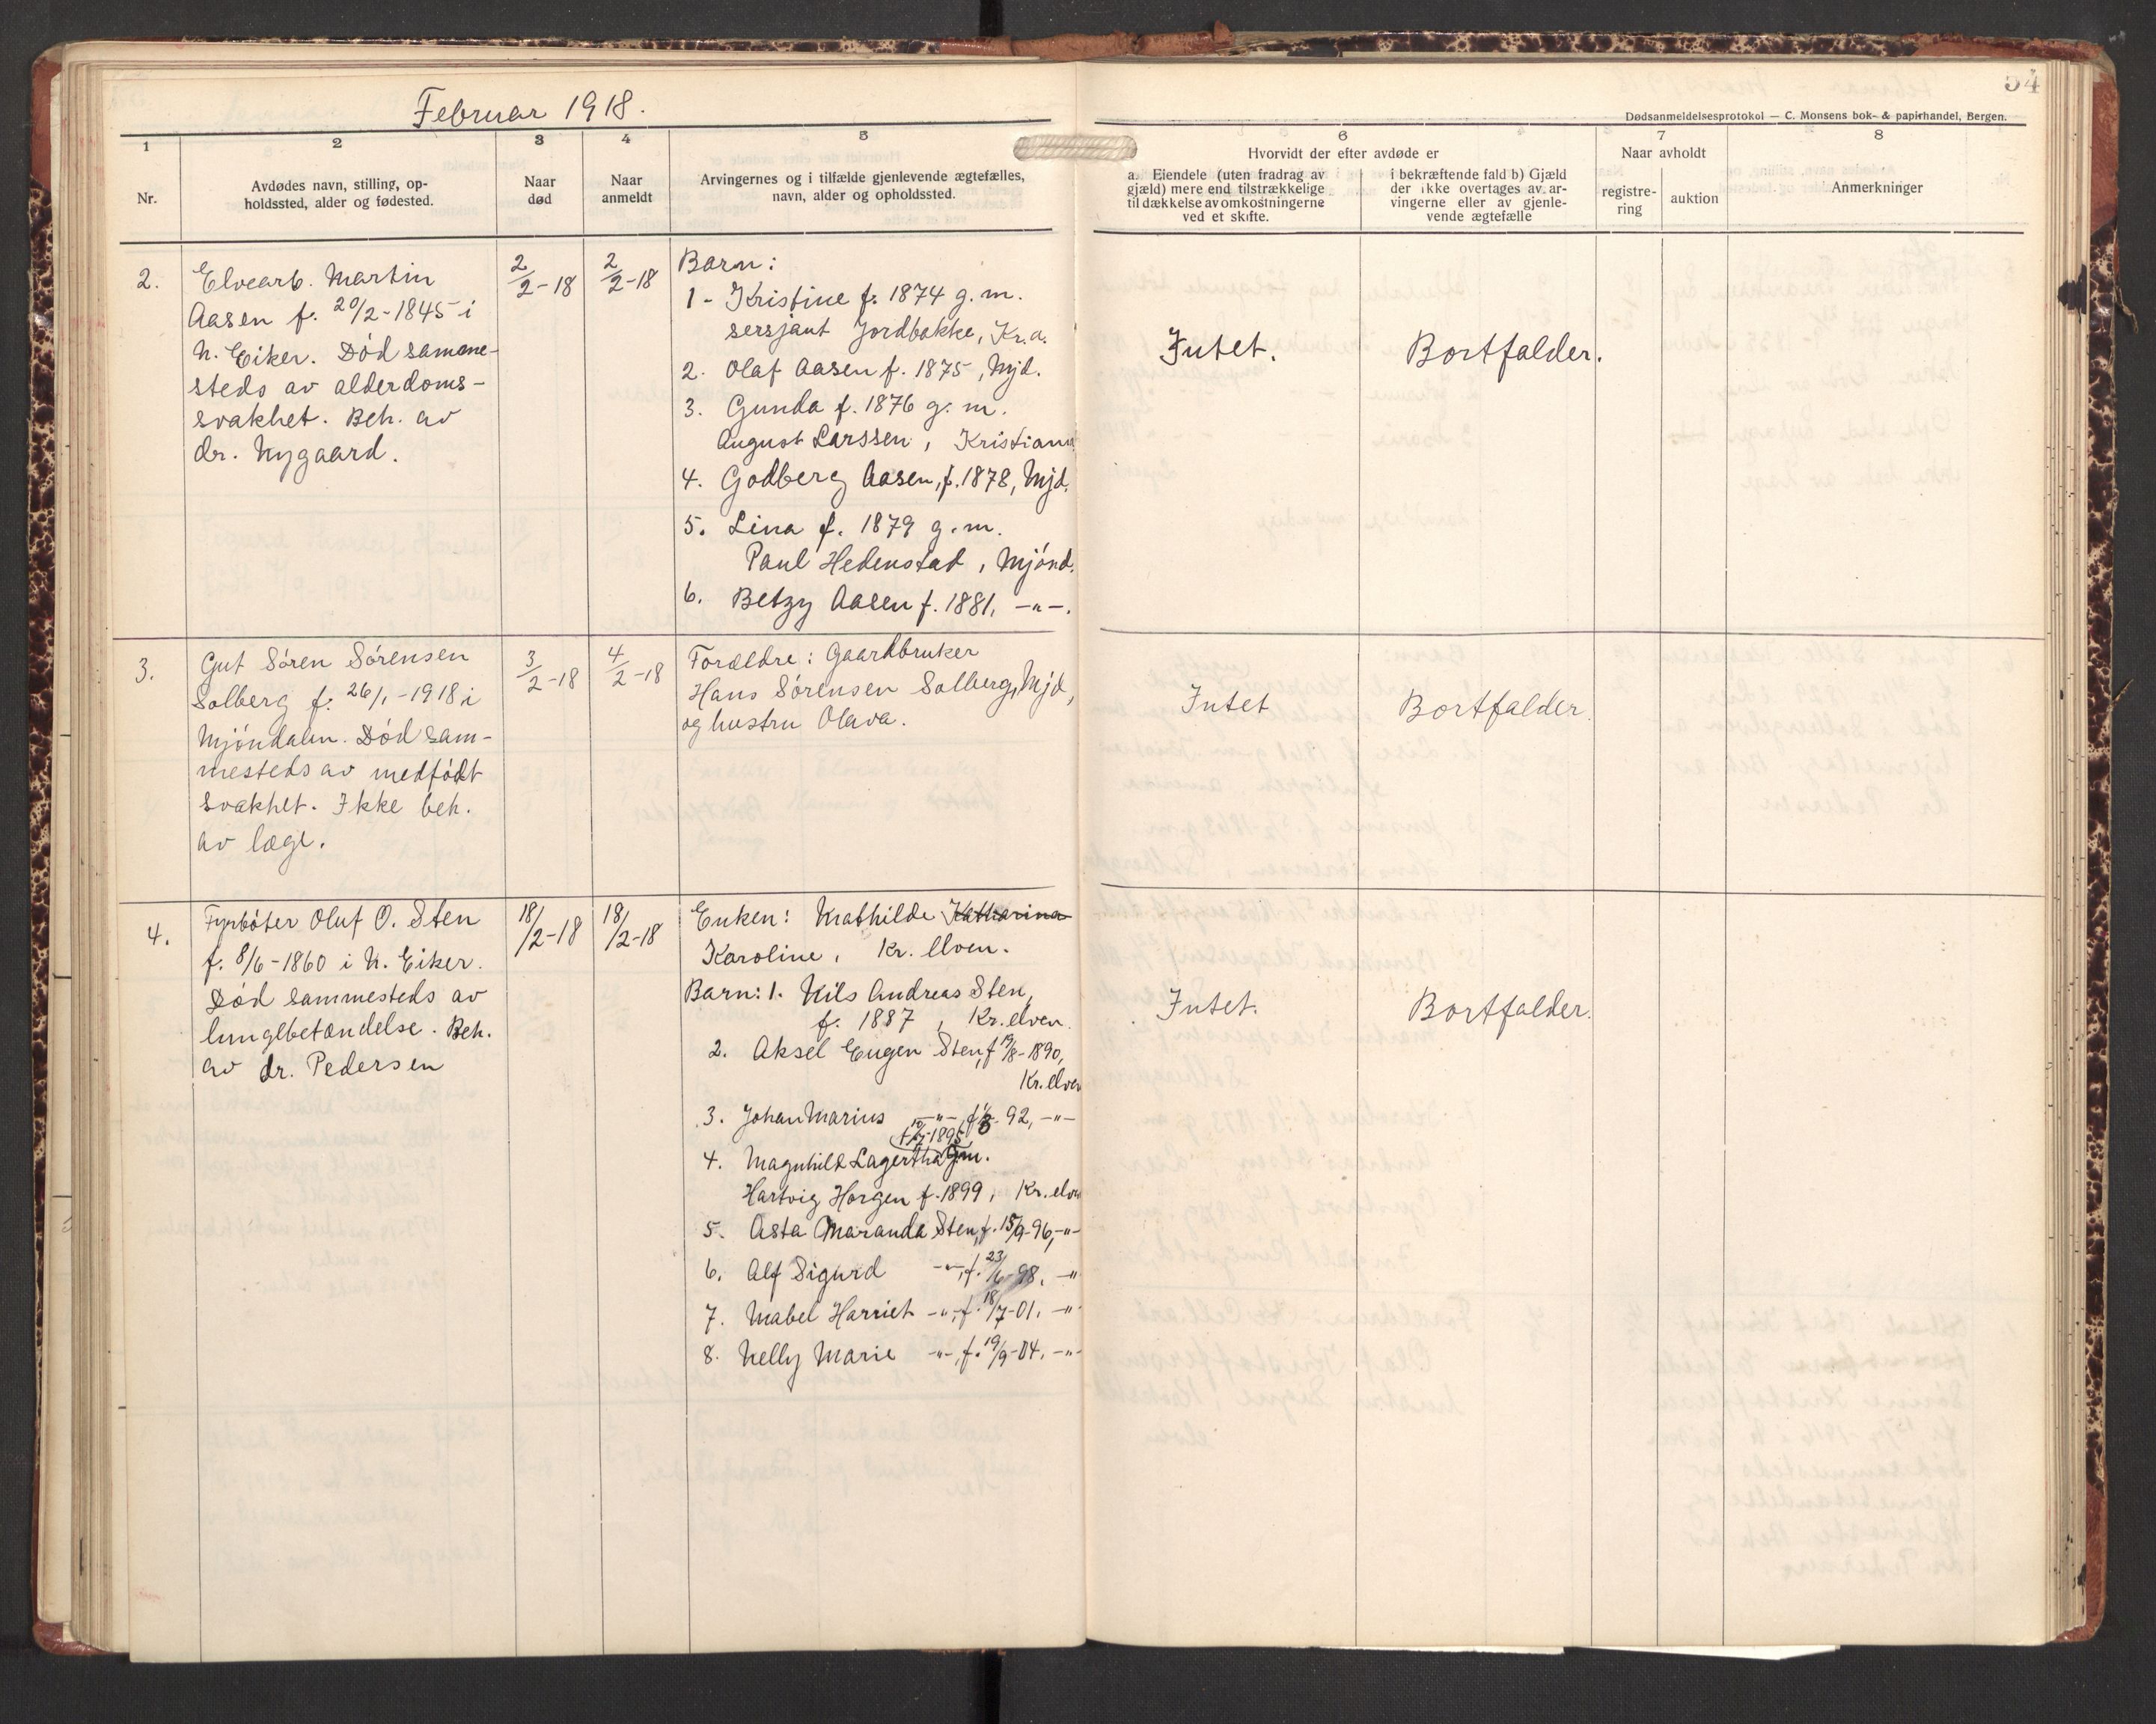 Februar 1918.
54
Dødsanmeldelsesprotokol — C. Monsens bok- & papirhandel, Bergen.
1
Nr.
2
Avdødes navn, stilling, op-
holdssted, alder og fødested.
3
Naar
død
4
Naar
anmeldt
5
Arvingernes og i tilfælde gjenlevende ægtefælles,
navn, alder og opholdssted.
6
Hvorvidt der efter avdøde er
a. Eiendele (uten fradrag av
gjæld) mere end tilstrækkelige
til dækkelse av omkostningerne
ved et skifte.
i bekræftende fald b) Gjæld
der ikke overtages av ar-
vingerne eller av gjenle-
vende ægtefælle
7
Naar avholdt
registre-
ring
auktion
8
Anmerkninger
2.
Elvearb. Martin
Aasen f. 20/2-1845 i
N. Eiker. Død samme-
steds av alderdoms-
svakhet. Beh. av
dr. Nygaard.
2/2-18
2/2-18
Barn:
1- Kristine f. 1874 g.m.
sersjant Jordbakke, Kr.a.
2. Olaf Aasen f. 1875, Mjd.
3. Gunda f. 1876 g.m.
August Larssen, Kristiania
4. Godberg Aasen, f. 1878, Mjd.
5. Lina f. 1879 g.m.
Paul Hedenstad, Mjónd.
6. Betzy Aasen f. 1881, —"—.
Intet.
Bortfalder.
3.
Gut Sóren Sórensen
Solberg f. 26/1-1918 i
Mjóndalen. Død sam-
mesteds av medfódt
svakhet. Ikke beh.
av læge.
3/2-18
4/2-18
Forældre: Gaardbruker
Hans Sórensen Solberg, Mjd,
og hustru Olava.
Intet
Bortfalder.
4.
Fyrbóter Oluf O. Sten
f. 8/6-1860 i N. Eiker.
Død sammesteds av
lungebetændelse. Beh.
av dr. Pedersen
18/2-18
18/2-18
Enken: Mathilde Katharina
Karoline, Kr. elven.
Barn: 1. Nils Andreas Sten,
f. 1887, Kr. elven.
2. Aksel Eugen Sten, f 19/8-1890,
Kr. elven
3. Johan Marius —"— 92, —"—
4. Magnhild Lagertha g.m.
Hartvig Horgen f. 1899, Kr. elven
5. Asta Maranda Sten, f. 15/9-96, —"—
6. Alf Sigurd —"—, f. 23/6-98, —"—
7. Mabel Harriet —"—, f. 18/7-01, —"—
8. Nelly Marie —"—, f. 19/9-04, —"—
Intet.
Bortfalder.